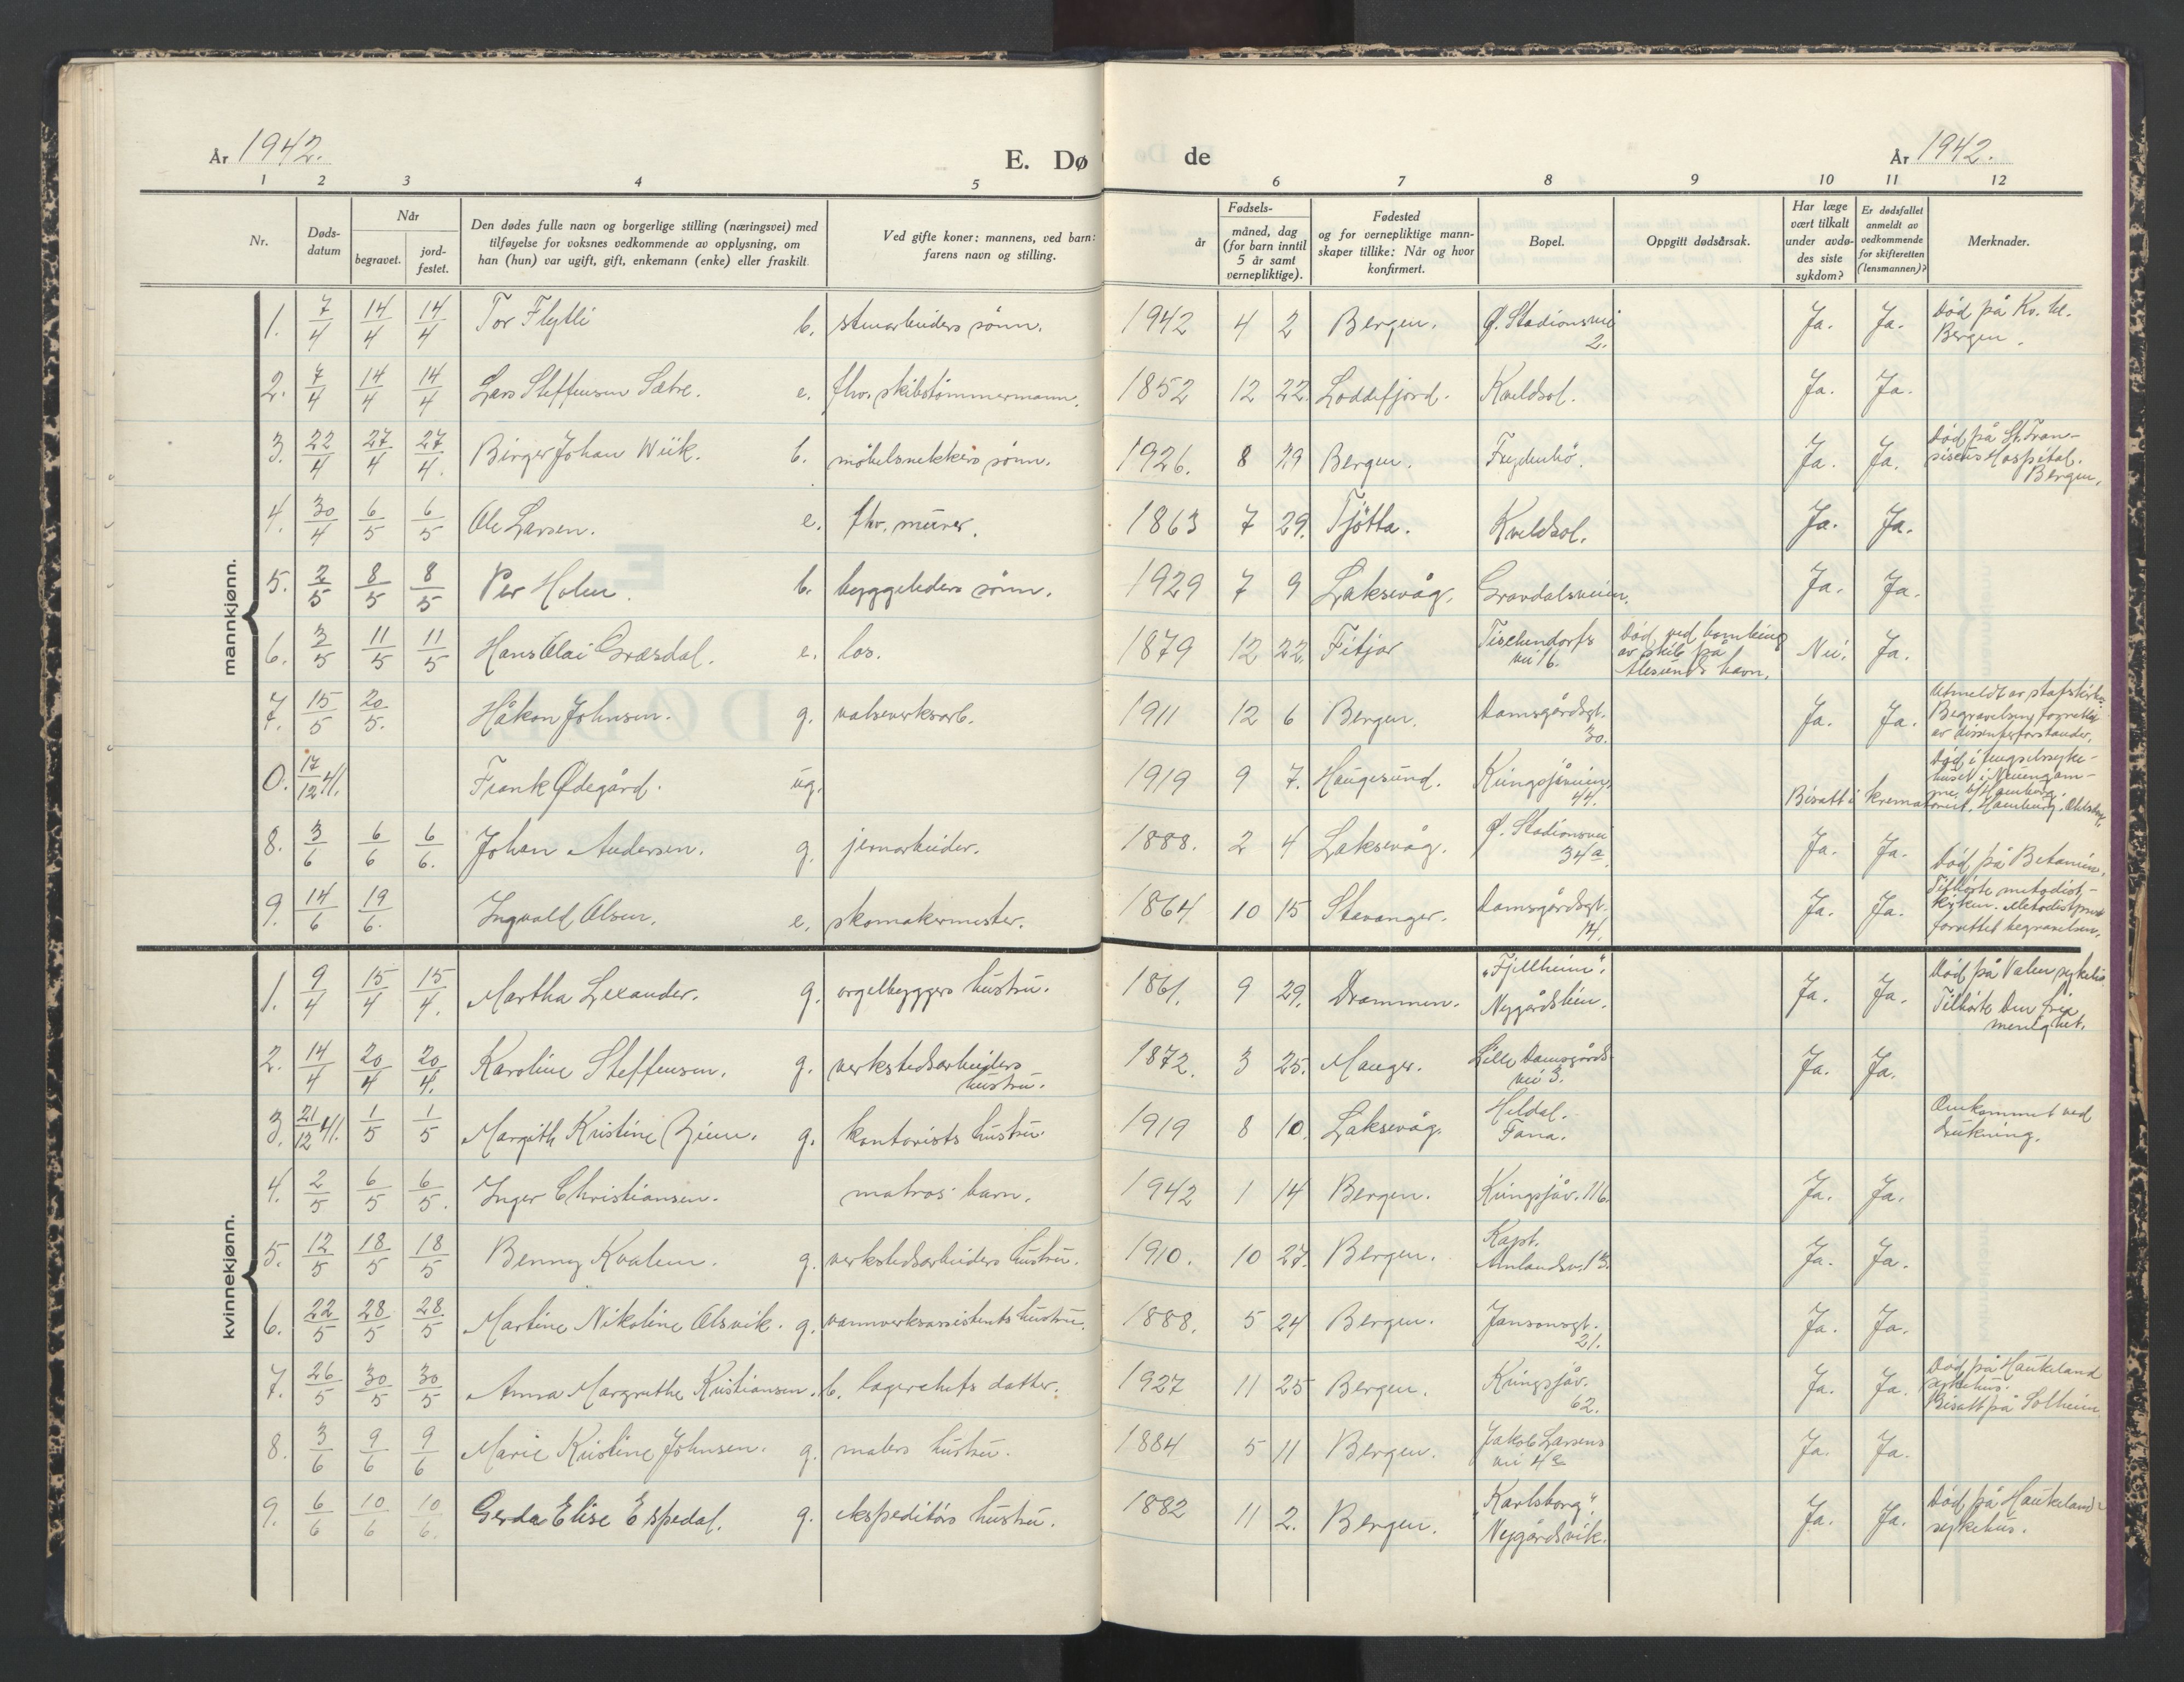 År 1942.
E. Dø de
År 1942.
1 2 3 4 5 6 7 8 9 10 11 12
Nr.
Døds-
datum
Når
begravet.
jord-
festet.
Den dødes fulle navn og borgerlige stilling (næringsvei) med
tilføyelse for voksnes vedkommende av opplysning, om
han (hun) var ugift, gift, enkemann (enke) eller fraskilt.
Ved gifte koner: mannens, ved barn:
farens navn og stilling.
Fødsels-
år
måned, dag
(for barn inntil
5 år samt
vernepliktige).
Fødested
og for vernepliktige mann-
skaper tillike: Når og hvor
konfirmert.
Bopel.
Oppgitt dødsårsak.
Har læge
vært tilkalt
under avdø-
des siste
sykdom?
Er dødsfallet
anmeldt av
vedkommende
for skifteretten
(lensmannen)?
Merknader.
mannkjønn.
1. 7/4 14/4 14/4 Tor Flytli b. stenarbeiders sønn. 1942 4 2 Bergen. Ø. Stadionsvei 2. Ja. Ja. Død på Kv. kl. Bergen.
2. 7/4 14/4 14/4 Lars Steffensen Sætre. e. fhv. skibstømmermann. 1852 12 22. Loddefjord. Kveldsol. Ja. Ja.
3. 22/4 27/4 27/4. Birger Johan Wiik. b. møbelsnekkers sønn. 1926. 8 29 Bergen. Frydenbø. Ja. Ja. Død på St. Fran-
siscus Hospital. Bergen.
4. 30/4 6/5 6/5 Ole Larsen. e. fhv. murer. 1863 7 29. Tjøtta. Kveldsol. Ja. Ja.
5. 2/5 8/5 8/5 Per Holm. b. byggeleders sønn. 1929 7 9 Laksevåg. Gravdalsveien. Ja. Ja.
6. 3/5 11/5 11/5 Hans Olai Græsdal. e. los. 1879 12 22. Fitjar Tischendorfs vei 16. Død ved bombing
av skib på
Ålesunds havn. Nei. Ja.
7. 15/5 20/5. Håkon Johnsen. g. valseverksarb. 1911 12 6 Bergen. Damsgårdsgt. 30. Ja. Ja. Utmeldt av statskirken.
Begravelsen forrettet
av dissenterforstander.
0. 17/12 41. Frank Ødegård. ug. 1919 9 7. Haugesund. Kringsjåveien 44. Død i fengselssyke-
huset i Neuengam-
me b/ Hamburg.
Bisatt i krematoriet, Hamburg,
8. 3/6 6/6 6/6. Johan Andersen. g. jernarbeider. 1888. 2 4 Laksevåg. Ø. Stadionsvei 34a. Ja. Ja. Død på Betanien.
9. 14/6 19/6. Ingvald Olsen. e. skomakermester. 1864. 10 15 Stavanger. Damsgårdsgt. 14. Ja. Ja. Tilhørte metodist-
kirken. Metodistprest
forrettet begravelsen.
kvinnekjønn.
1. 9/4 15/4 15/4. Martha Lexander. g. orgelbyggers hustru. 1861. 9 29. Drammen. "Fjellheim". Nygårdslien. Ja. Ja. Død på Valen sykehus.
Tilhørte Den frie
menighet.
2. 14/4 20/4 20/4. Karoline Steffensen. g. verkstedsarbeiders hustru. 1872. 3 25. Manger. Lille Damsgårds vei 3. Ja. Ja.
3. 21/12 41. 1/5 1/5 Margith Kristine g. kontorists hustru. 1919 8 10. Laksevåg. Heldal. Fana. Omkommet ved
drukning.
4. 2/5 6/5 6/5. Inger Christiansen. matros' barn. 1942 1 14 Bergen. Kringsjåv. 116. Ja. Ja.
5. 12/5 18/5 18/5 Benny Kvalem. g. verkstedsarbeiders hustru. 1910. 10 27. Bergen. Kapt. Amlandsv. 13. Ja. Ja.
6. 22/5 28/5 28/5 Martine Nikoline Olsvik. g. vannverksassistents hustru. 1888. 5 24 Bergen. Jansonsgt. 21. Ja. Ja.
7. 26/5 30/5 30/5 Anna Margrethe Kristiansen. b. lagerchefs datter. 1927 11 25 Bergen. Kringsjåv. 62. Ja. Ja. Død på Haukeland
sykehus.
Bisatt på Solheim.
8. 3/6 9/6 9/6 Marie Kristine Johnsen. g. malers hustru. 1884 5 11 Bergen. Jakob Larsens vei 4a Ja. Ja.
9. 6/6 10/6 10/6. Gerda Elise Espedal. g. ekspeditørs hustru. 1882 11 2. Bergen. "Karlsborg" Nygårdsvik. Ja. Ja. Død på Haukeland
sykehus.